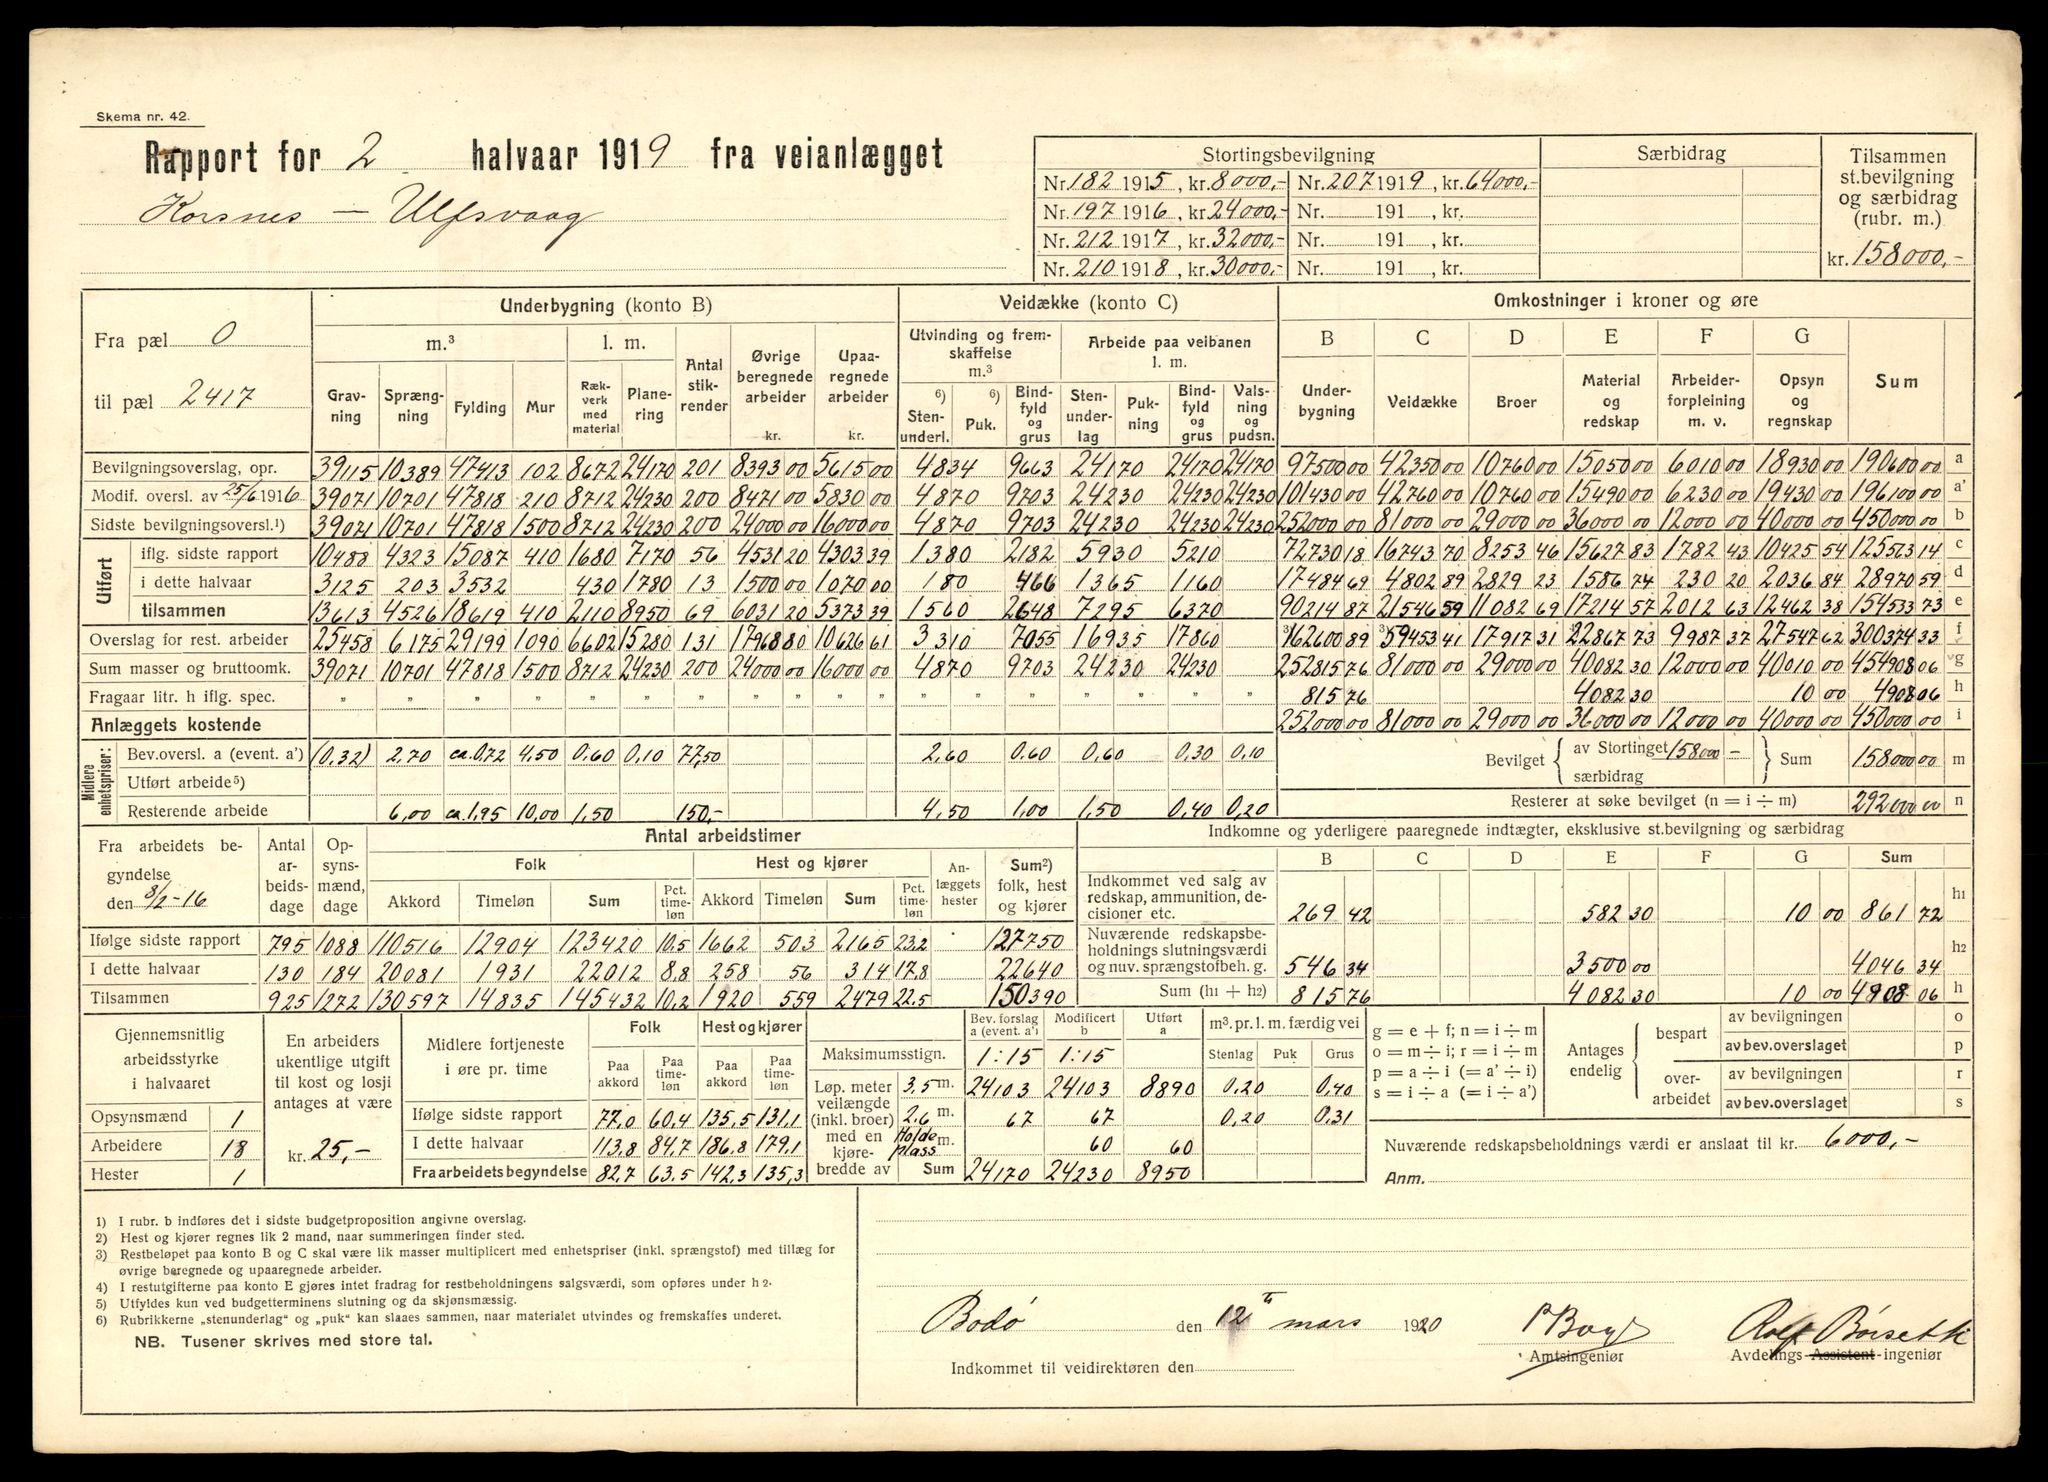 Skema nr. 42.
Rapport for 2 halvaar 1919 fra veianlægget
Korsnes — Ulfsvaag
Stortingsbevilgning Særbidrag Tilsammen st.bevilgning og særbidrag (rubr. m.)
Nr. 182 1915, kr. 8000,- Nr. 207 1919, kr. 64000,-
Nr. 197 1916, kr. 24000,- Nr. 191 , kr.
Nr. 212 1917, kr. 32000,- Nr. 191 , kr.
Nr. 210 1918, kr. 30000,- Nr. 191 , kr.
kr. 158000,-
Fra pæl 0
til pæl 2417
Underbygning (konto B) Veidække (konto C) Omkostninger i kroner og øre
m.³ l. m. Antal stikrender Øvrige beregnede arbeider kr. Upaaregnede arbeider kr. Utvinding og fremskaffelse m.³ Arbeide paa veibanen l. m. B C D E F G
Gravning Sprængning Fylding Mur Rækverk med material Planering 6) Stenunderl. 6) Puk. Bindfyld og grus Stenunderlag Pukning Bindfyld og grus Valsning og pudsn. Underbygning Veidække Broer Material og redskap Arbeiderforpleining m. v. Opsyn og regnskap Sum
Bevilgningsoverslag, opr. 39115 10389 47413 102 8672 24170 201 8393 00 5615 00 4834 9663 24170 24170 24170 97500 00 42350 00 10760 00 15050 00 6010 00 18930 00 190600 00 a
Modif. oversl. av 25/6 1916 39071 10701 47818 210 8712 24230 200 8471 00 5830 00 4870 9703 24230 24230 24230 101430 00 42760 00 10760 00 15490 00 6230 00 19430 00 196100 00 a'
Sidste bevilgningsoversl.¹) 39071 10701 47818 1500 8712 24230 200 24000 00 16000 00 4870 9703 24230 24230 24230 252000 00 81000 00 29000 00 36000 00 12000 00 40000 00 450000 00 b
Utført
iflg. sidste rapport 10488 4323 15087 410 1680 7170 56 4531 20 4303 39 1380 2182 5930 5210 72730 18 16743 70 8253 46 15627 83 1782 43 10425 54 125563 14 c
i dette halvaar 3125 203 3532 430 1780 13 1500 00 1070 00 180 466 1365 1160 17484 69 4802 89 2829 23 1586 74 230 20 2036 84 28970 59 d
tilsammen 13613 4526 18619 410 2110 8950 69 6031 20 5373 39 1560 2648 7295 6370 90214 87 21546 59 11082 69 17214 57 2012 63 12462 38 154533 73 e
Overslag for rest. arbeider 25458 6175 29199 1090 6602 15280 131 17968 80 10626 61 3310 7055 16935 17860 ³162600 89 ³59453 41 17917 31 22867 73 9987 37 27547 62 300374 33 f
Sum masser og bruttoomk. 39071 10701 47818 1500 8712 24230 200 24000 00 16000 00 4870 9703 24230 24230 252815 76 81000 00 29000 00 40082 30 12000 00 40010 00 454908 06 g
Fragaar litr. h iflg. spec. " " " " " " " " " " " " " " " 815 76 4082 30 10 00 4908 06 h
Anlæggets kostende 252000 00 81000 00 29000 00 36000 00 12000 00 40000 00 450000 00 i
Midlere enhetspriser:
Bev.oversl. a (event. a') (0.32) 2.70 ca 0.72 4.50 0.60 0.10 77,50 2.60 0.60 0.60 0.30 0.10 Bevilget av Stortinget 158000 — særbidrag Sum 158000 00 m
Utført arbeide⁵)
Resterende arbeide 6,00 ca 1.95 10,00 1,50 150,- 4.50 1.00 1,50 0,40 0,20 Resterer at søke bevilget (n = i ÷ m) 292000 00 n
Fra arbeidets begyndelse den 8/2-16 Antal arbeidsdage Opsynsmænd, dage Antal arbeidstimer
Folk Hest og kjører Anlæggets hester Sum²) folk, hest og kjører
Akkord Timeløn Sum Pct. timeløn Akkord Timeløn Sum Pct. timeløn
Ifølge sidste rapport 795 1088 110516 12904 123420 10.5 1662 503 2165 23.2 127750
I dette halvaar 130 184 20081 1931 22012 8.8 258 56 314 17.8 22640
Tilsammen 925 1272 130597 14835 145432 10.2 1920 559 2479 22.5 150390
Indkomne og yderligere paaregnede indtægter, eksklusive st.bevilgning og særbidrag
B C D E F G Sum
Indkommet ved salg av redskap, ammunition, decisioner etc. 269 42 582 30 10 00 861 72 h1
Nuværende redskapsbeholdnings slutningsværdi og nuv. sprængstofbeh. g. 546 34 3500 00 4046 34 h2
Sum (h1 + h2) 815 76 4082 30 10 00 4908 06 h
Gjennemsnitlig arbeidsstyrke i halvaaret
Opsynsmænd 1
Arbeidere 18
Hester 1
En arbeiders ukentlige utgift til kost og losji antages at være
kr. 25,-
Midlere fortjeneste i øre pr. time Folk Hest og kjører
Paa akkord Paa timeløn Paa akkord Paa timeløn
Ifølge sidste rapport 77,0 60,4 135,5 131,1
I dette halvaar 113,8 84,7 186,8 179,1
Fra arbeidets begyndelse 82,7 63,5 142,3 135,3
Bev. forslag a (event. a') Modificert b Utført a m³. pr. l. m. færdig vei
Maksimumsstign. 1:15 1:15 Stenlag Puk Grus
Løp. meter veilængde (inkl. broer) med en kjørebredde av
3,5 m. 24103 24103 8890 0,20 0,40
2,6 m. 67 67 0,20 0,31
Holdeplass m. 60 60
Sum 24170 24230 8950
g = e + f; n = i ÷ m
o = m ÷ i; r = i ÷ m
p = a ÷ i (= a' ÷ i)
s = i ÷ a (= i ÷ a')
Antages endelig
bespart av bevilgningen o
av bev.overslaget p
overarbeidet av bevilgningen r
av bev.overslaget s
Nuværende redskapsbeholdnings værdi er anslaat til kr. 6000,-
Anm.
1) I rubr. b indføres det i sidste budgetproposition angivne overslag.
2) Hest og kjører regnes lik 2 mand, naar summeringen finder sted.
3) Restbeløpet paa konto B og C skal være lik masser multiplicert med enhetspriser (inkl. sprængstof) med tillæg for
øvrige beregnede og upaaregnede arbeider.
4) I restutgifterne paa konto E gjøres intet fradrag for restbeholdningens salgsværdi, som opføres under h 2.
5) Utfyldes kun ved budgetterminens slutning og da skjønsmæssig.
6) Rubrikkerne „stenunderlag" og „puk" kan slaaes sammen, naar materialet utvindes og fremskaffes underet.
NB. Tusener skrives med store tal.
Bodø den 12 mars 1920
Rolf Børseth
Amtsingeniør Avdelings-Assistent-ingeniør
Indkommet til veidirektøren den